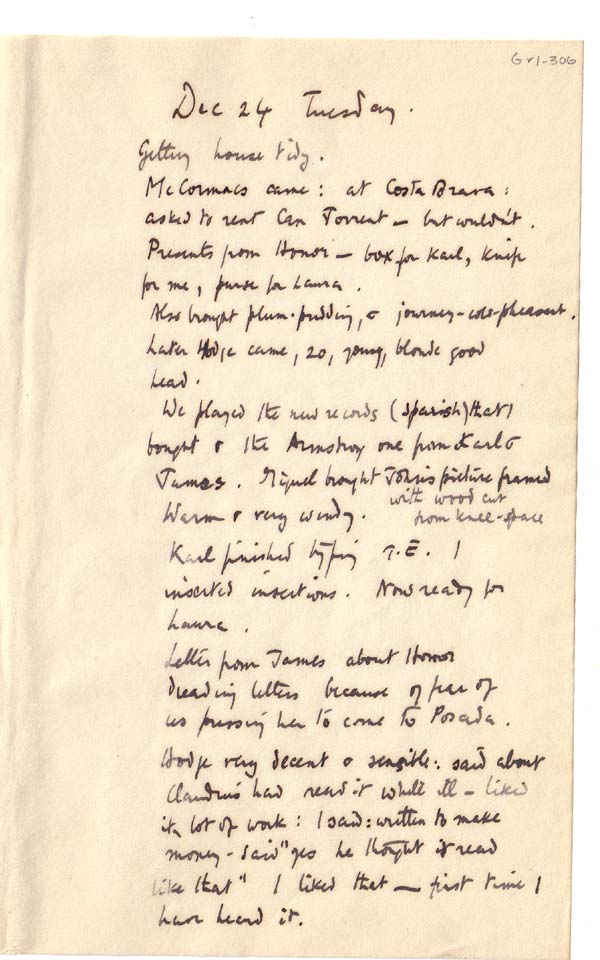 Gv1-306
Dec 24 Tuesday.
Getting house tidy.
McCormacs came: at Costa Brava:
asked to rent Can Torrent – but wouldn't.
Presents from Honor – box for Karl, knife
for me, purse for Laura.
Also brought plum-pudding, & journey-cold-pheasant.
Later Hodge came, 20, young, blonde good
head.
We played the new records (Spanish) that I
bought & the Armstrong one from Karl &
James. Miguel brought John's picture framed
with wood cut
from knee-space
Warm & very windy.
Karl finished typing T.E. I
inserted insertions. Now ready for
Laura.
Letter from James about Honor
dreading letters because of fear of
us pressing her to come to Posada.
Hodge very decent & sensible: said about
Claudius had read it while ill – liked
it, lot of work: I said: written to make
money – said "yes he thought it read
like that" I liked that – first time I
have heard it.